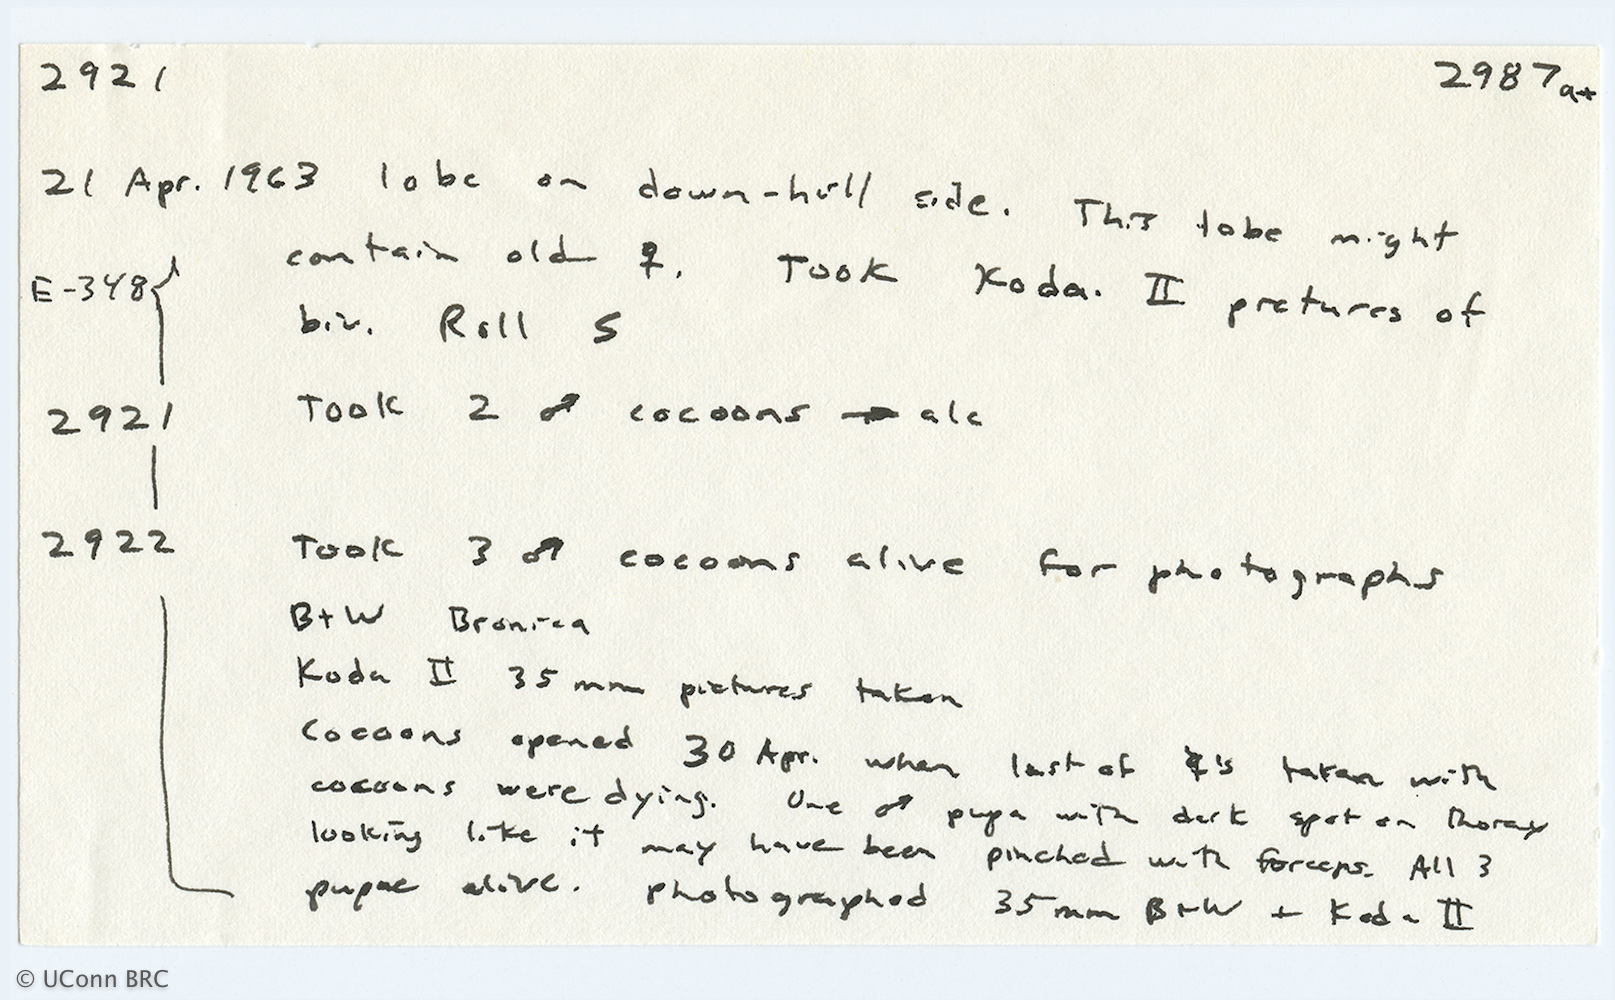 2921 2987a+
21 Apr. 1963 lobe on down-hill side. This lobe might
contain old ♀. Took Koda. II pictures of
E-348{ biv. Roll 5
2921 Took 2 ♂ cocoons → alc
2922 Took 3 ♂ cocoons alive for photographs
B+W Bronica
Koda II 35 mm pictures taken
Cocoons opened 30 Apr. when last of ☿'s taken with
cocoons were dying. One ♂ pupa with dark spot on thorax
looking like it may have been pinched with forceps. All 3
pupae alive. photographed 35mm B+W + Koda II
© UConn BRC